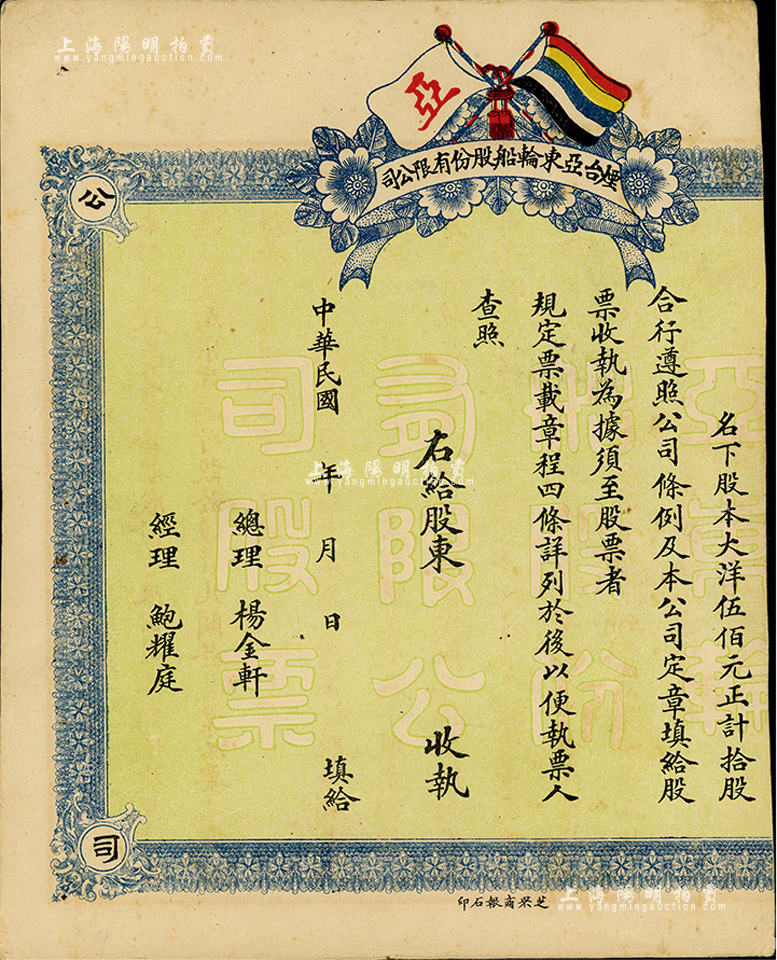 上海陽明拍賣
www.yangmingauction.com
亞
煙台亞東輪船股份有限公司
公
名下股本大洋伍佰元正計拾股
合行遵照公司條例及本公司定章填給股
票收執為據須至股票者
規定票載章程四條詳列於後以便執票人
查照
右給股東 收執
中華民國 年 月 日 填給
總理 楊金軒
經理 鮑耀庭
司
有限公
司股票
上海陽明拍賣
www.yangmingauction.com
芝罘商報石印
上海陽明拍賣
www.yangmingauction.com